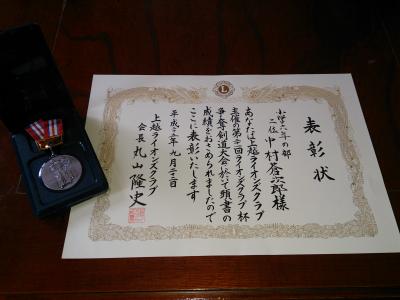 表彰状
小学六年の部
二位 中村蒼次郎 様
あなたは上越ライオンズクラブ
主催の第十一回ライオンズクラブ杯
争奪剣道大会に於て頭書の
成績をおさめられましたので
ここに表彰いたします
平成二十三年九月二十三日
上越ライオンズクラブ
会長 丸山隆史